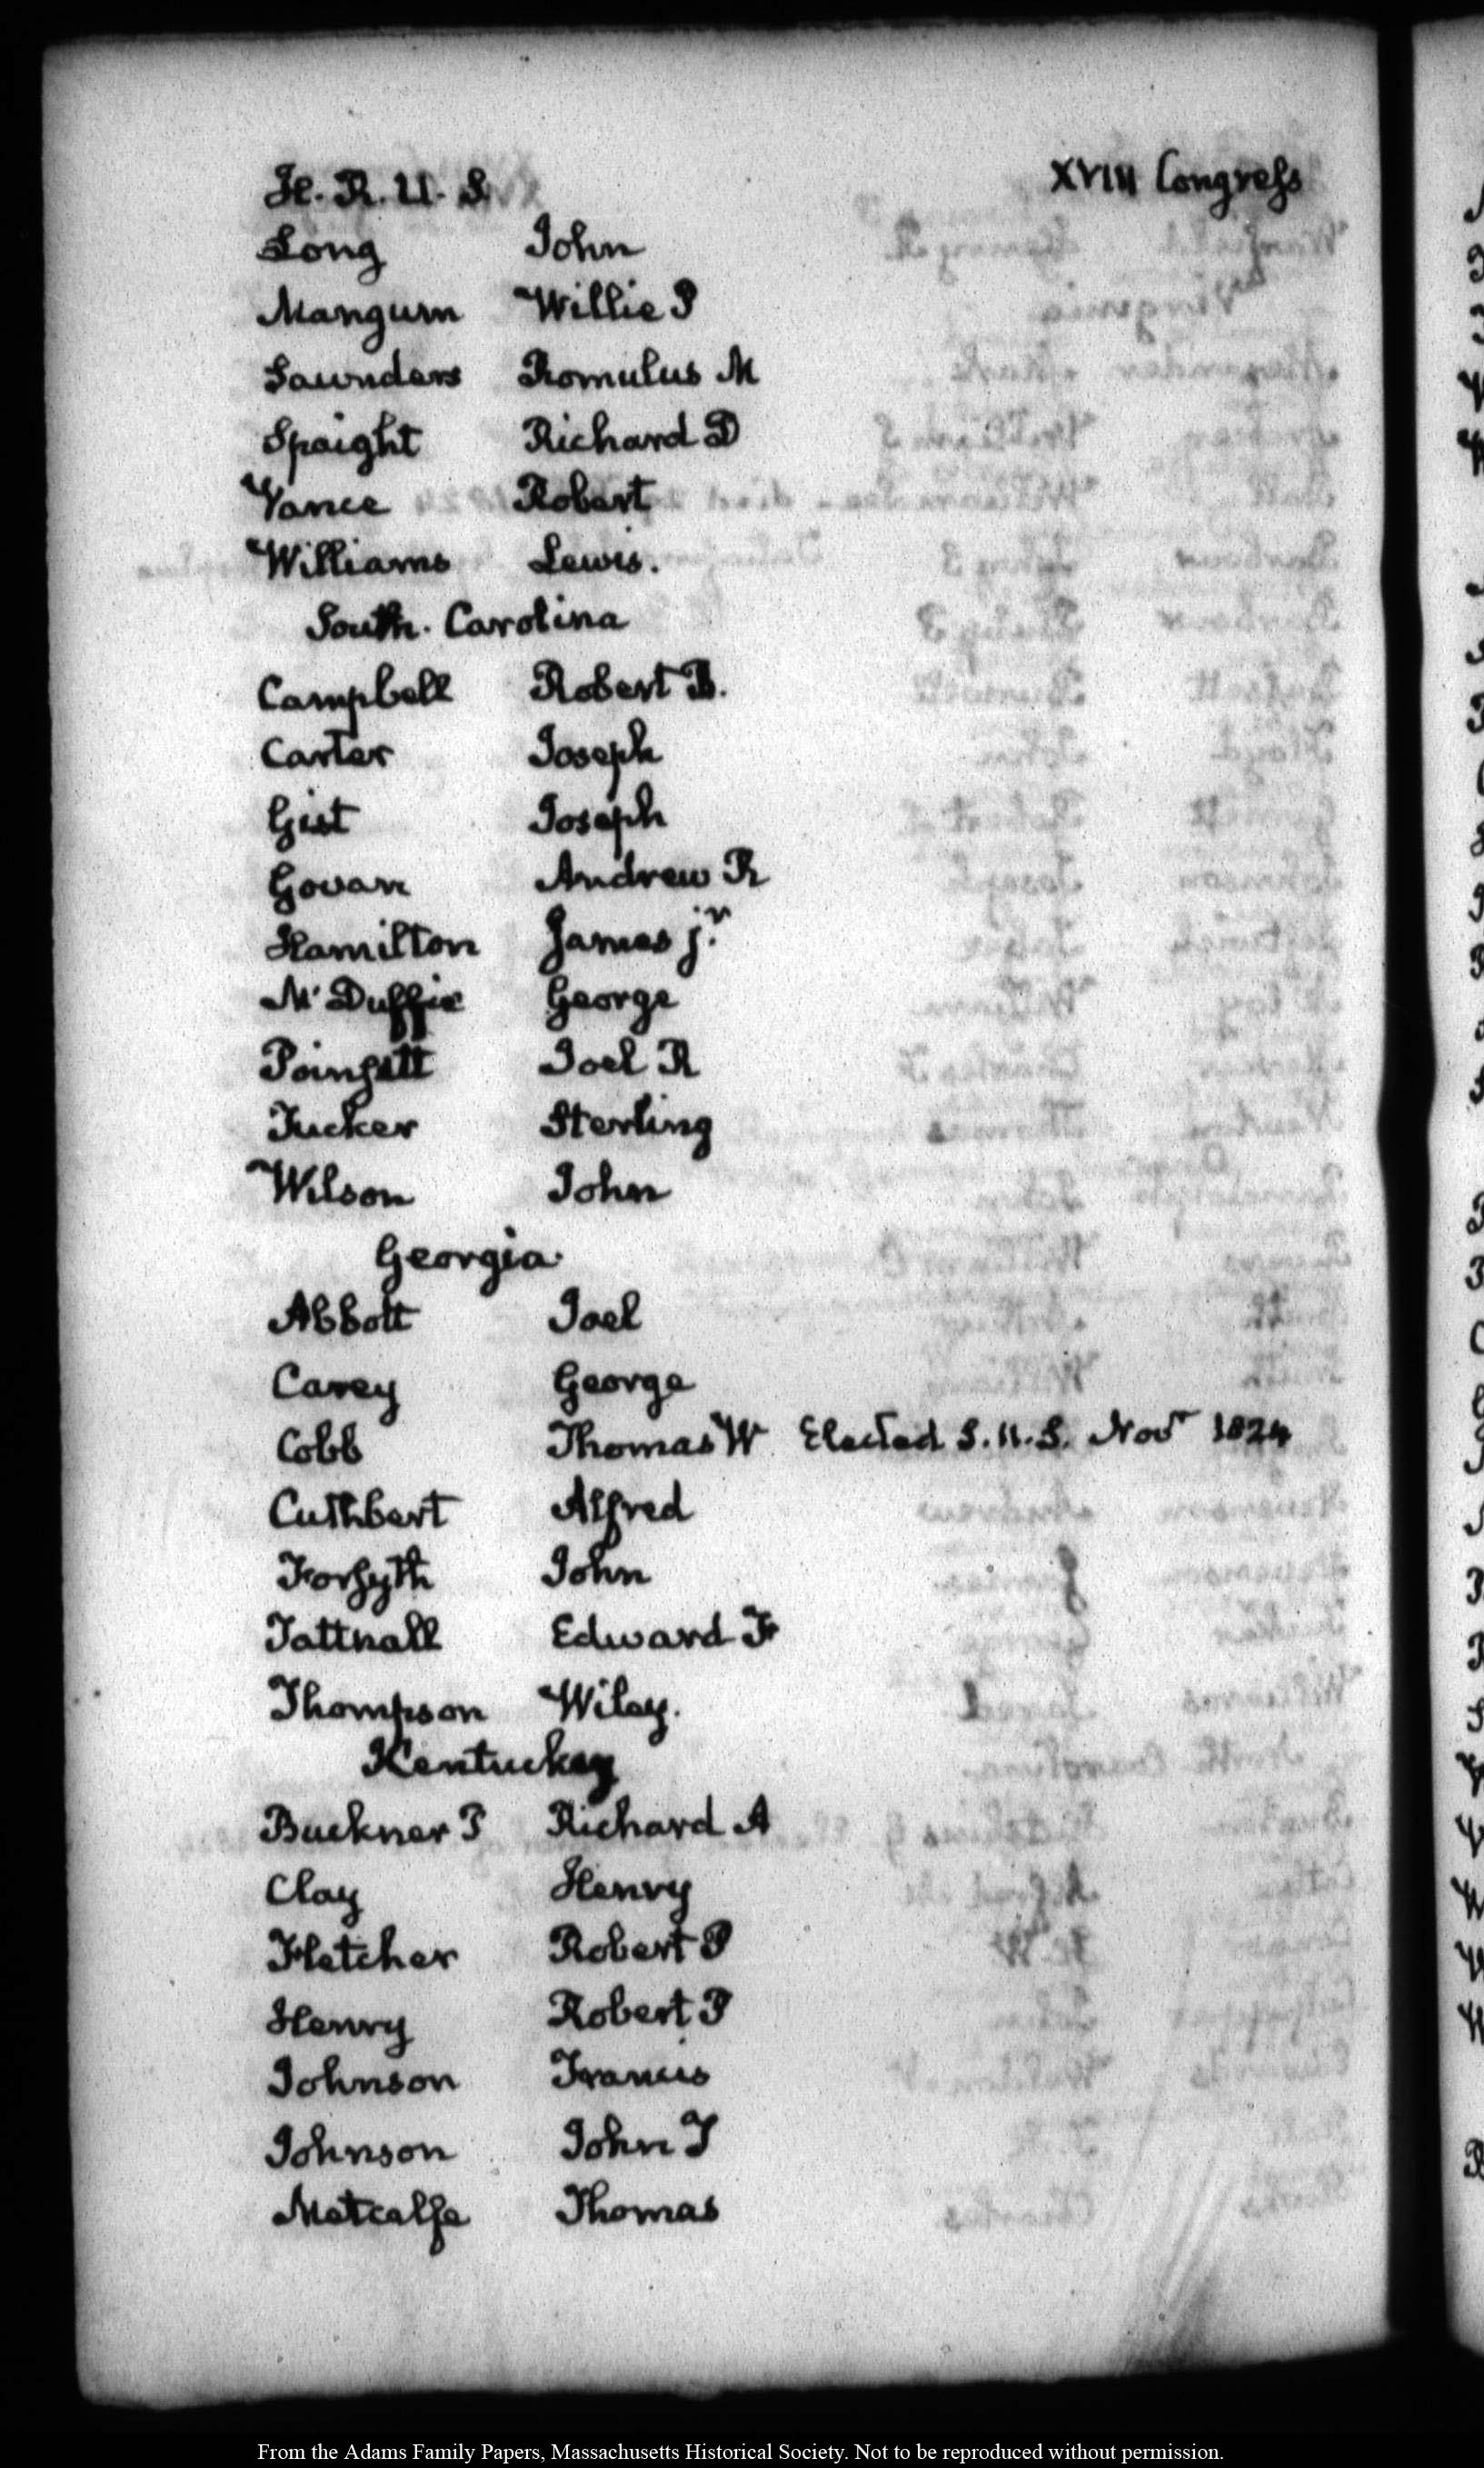 H. R. U. S. XVIII Congress
Long John
Mangum Willie P
Saunders Romulus M
Spaight Richard D
Vance Robert
Williams Lewis.
South. Carolina
Campbell Robert B.
Carter Joseph
Gist Joseph
Govan Andrew R
Hamilton James jr.
Mc Duffie George
Poinsett Joel R
Tucker Sterling
Wilson John
Georgia
Abbott Joel
Carey George
Cobb Thomas W Elected S. U. S. Novr 1824
Cuthbert Alfred
Forsyth John
Tattnall Edward F
Thompson Wiley.
Kentuckey
Buckner Richard A
Clay Henry
Fletcher Robert P
Henry Robert P
Johnson Francis
Johnson John T
Metcalfe Thomas
From the Adams Family Papers, Massachusetts Historical Society. Not to be reproduced without permission.